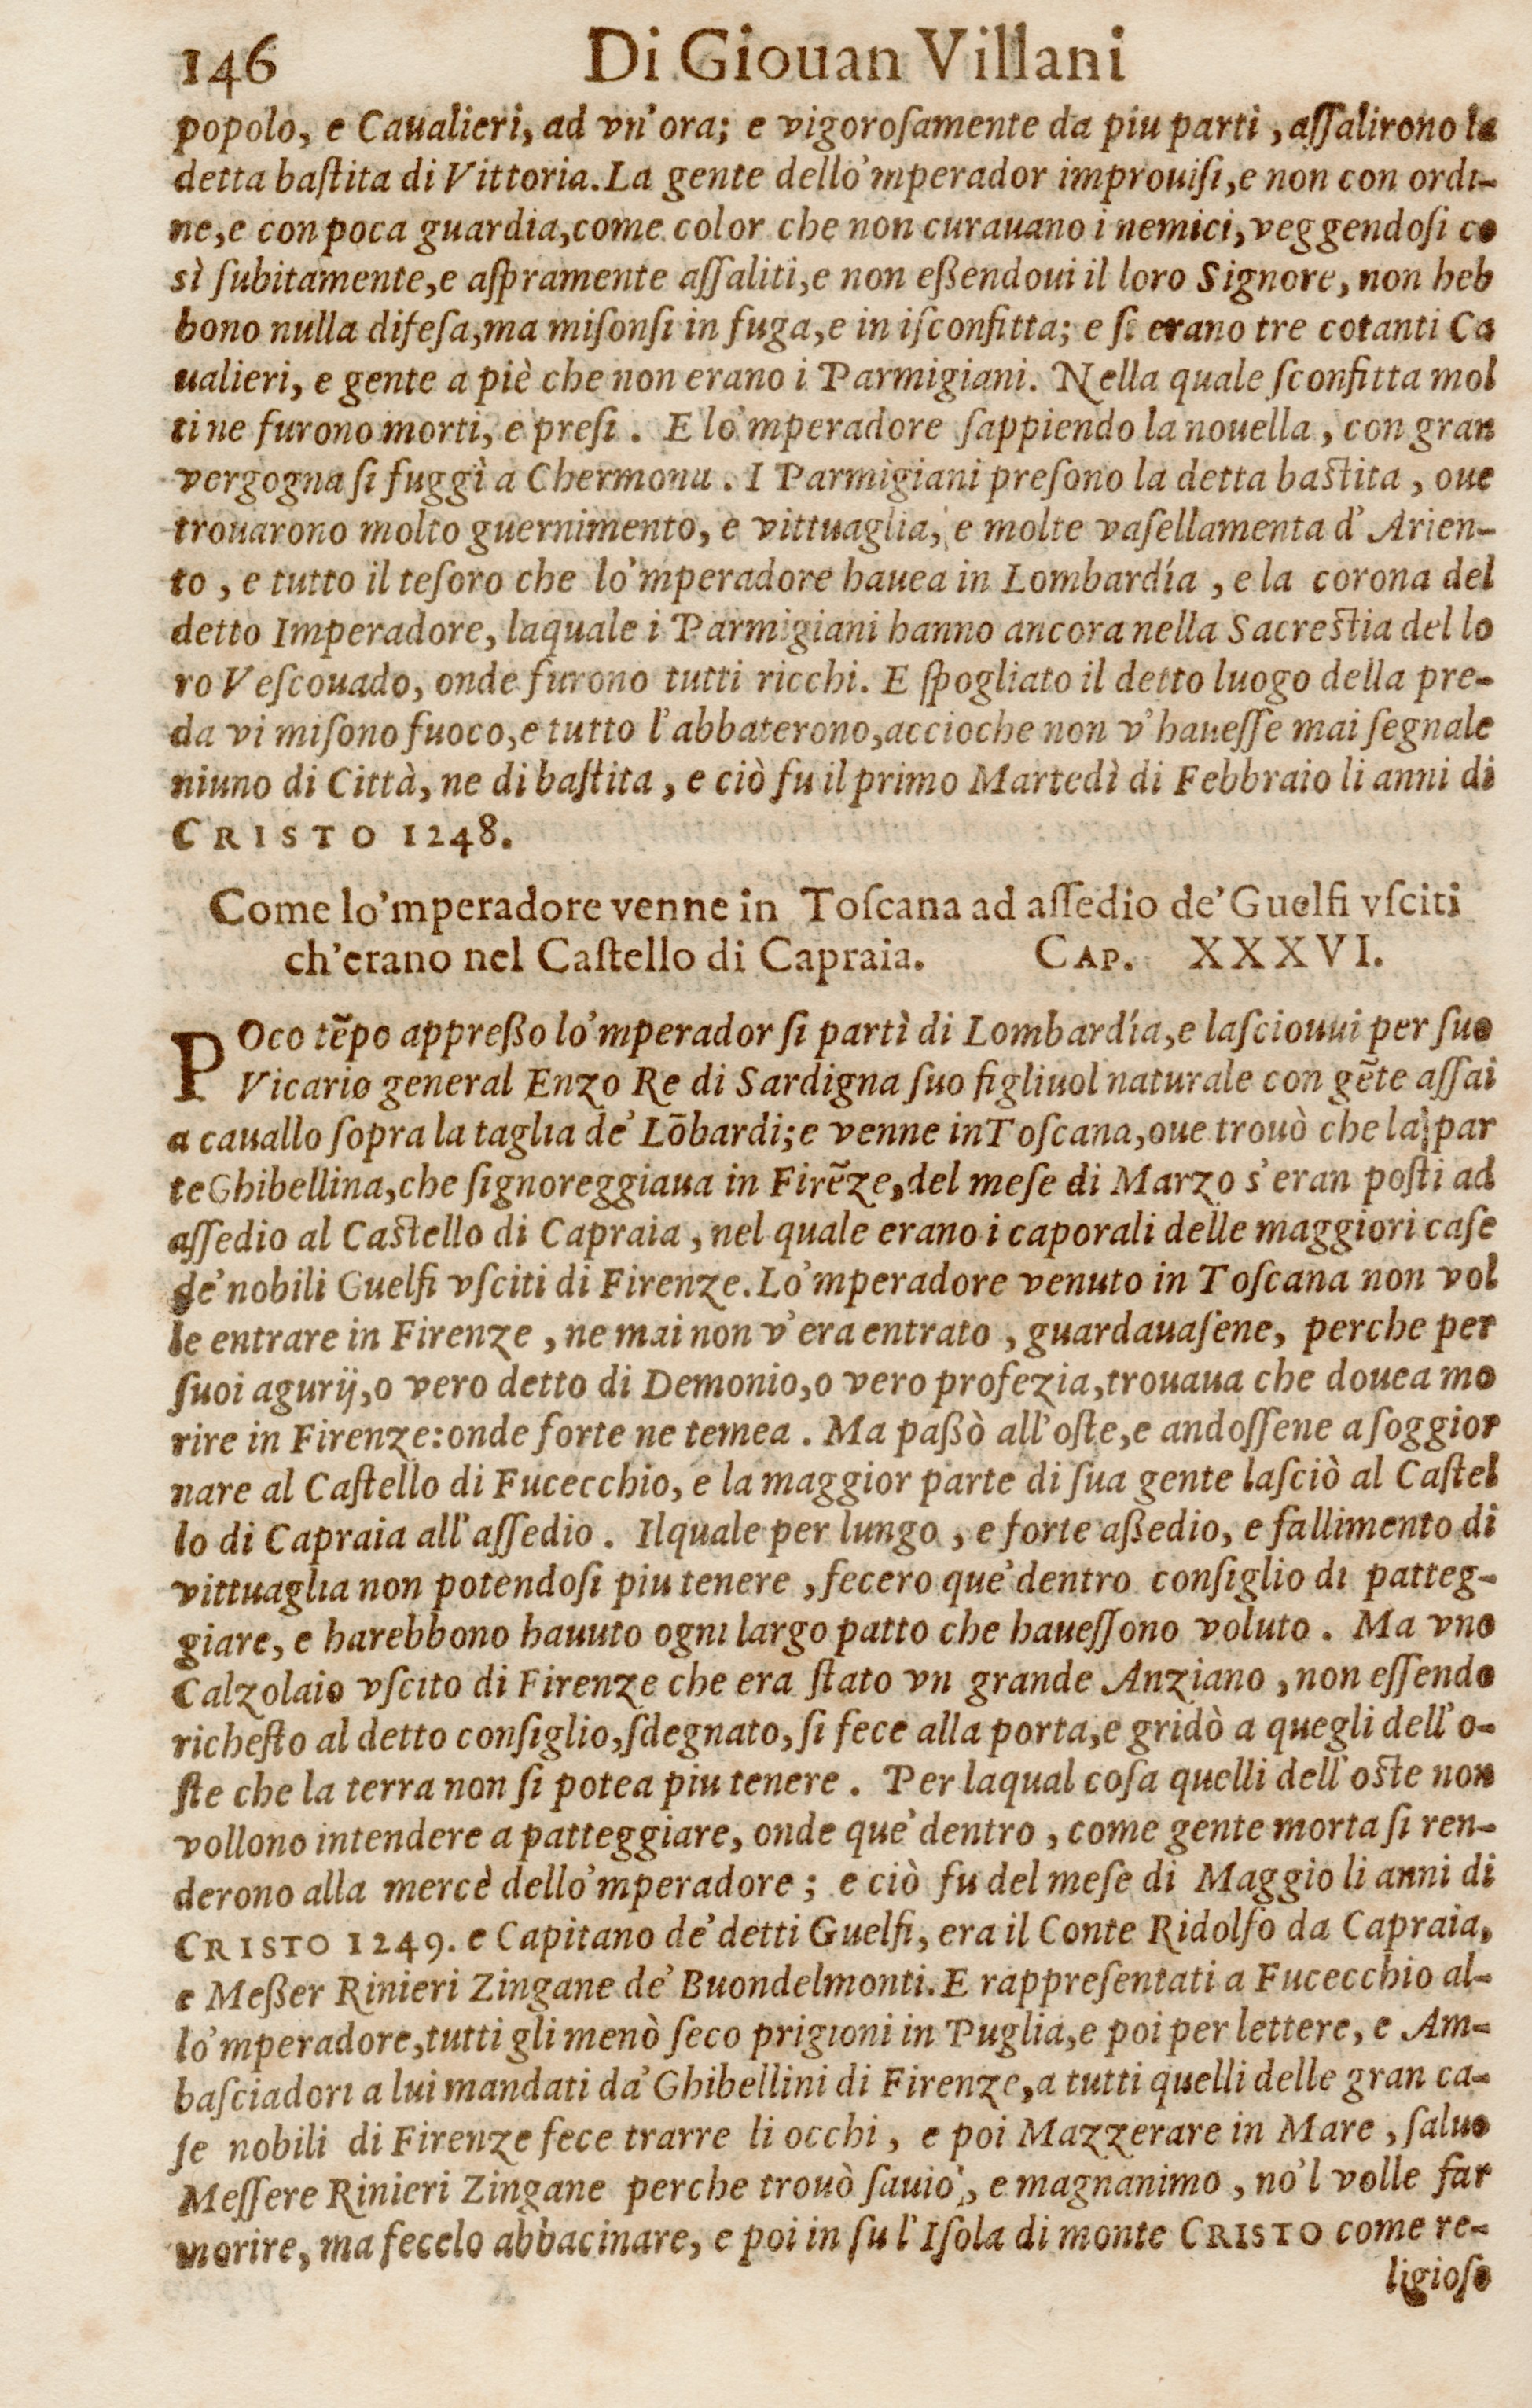 146 Di Giouan Villani
popolo, e Caualieri, ad vn'ora; e vigoroſamente da piu parti, aſſalirono la
detta baſtita di Vittoria. La gente dello'mperador improuiſi, e non con ordi-
ne, e con poca guardia, come color che non curauano i nemici, veggendoſi co
sì ſubitamente, e aſpramente aſſaliti, e non eßendoui il loro Signore, non heb
bono nulla difeſa, ma miſonſi in fuga, e in iſconfitta; e ſi erano tre cotanti Ca
ualieri, e gente a piè che non erano i Parmigiani. Nella quale ſconfitta mol
ti ne furono morti, e preſi. E lo'mperadore ſappiendo la nouella, con gran
vergogna ſi fuggì a Chermona. I Parmigiani preſono la detta baſtita, oue
trouarono molto guernimento, e vittuaglia, e molte vaſellamenta d'Arien-
to, e tutto il teſoro che lo'mperadore hauea in Lombardía, e la corona del
detto Imperadore, laquale i Parmigiani hanno ancora nella Sacreſtia del lo
ro Veſcouado, onde furono tutti ricchi. E ſpogliato il detto luogo della pre-
da vi miſono fuoco, e tutto l'abbaterono, accioche non v'haueſſe mai ſegnale
niuno di Città, ne di baſtita, e ciò fu il primo Martedì di Febbraio li anni di
CRISTO 1248.
Come lo'mperadore venne in Toſcana ad aſſedio de'Guelfi vſciti
ch'erano nel Caſtello di Capraia. CAP. XXXVI.
POco tẽpo appreßo lo'mperador ſi partì di Lombardía, e laſciouui per ſuo
Vicario general Enzo Re di Sardigna ſuo figliuol naturale con gẽte aſſai
a cauallo ſopra la taglia de' Lõbardi; e venne in Toſcana, oue trouò che la par
te Ghibellina, che ſignoreggiaua in Firẽze, del meſe di Marzo s'eran poſti ad
aſſedio al Caſtello di Capraia, nel quale erano i caporali delle maggiori caſe
de'nobili Guelfi vſciti di Firenze. Lo'mperadore venuto in Toſcana non vol
le entrare in Firenze, ne mai non v'era entrato, guardauaſene, perche per
ſuoi agurij, o vero detto di Demonio, o vero profezia, trouaua che douea mo
rire in Firenze: onde forte ne temea. Ma paßò all'oſte, e andoſſene a ſoggior
nare al Caſtello di Fucecchio, e la maggior parte di ſua gente laſciò al Caſtel
lo di Capraia all'aſſedio. Ilquale per lungo, e forte aßedio, e fallimento di
vittuaglia non potendoſi piu tenere, fecero que'dentro conſiglio di patteg-
giare, e harebbono hauuto ogni largo patto che haueſſono voluto. Ma vno
Calzolaio vſcito di Firenze che era ſtato vn grande Anziano, non eſſendo
richeſto al detto conſiglio, ſdegnato, ſi fece alla porta, e gridò a quegli dell'o-
ſte che la terra non ſi potea piu tenere. Per laqual coſa quelli dell'oſte non
vollono intendere a patteggiare, onde que'dentro, come gente morta ſi ren-
derono alla mercè dello'mperadore; e ciò fu del meſe di Maggio li anni di
CRISTO 1249. e Capitano de'detti Guelfi, era il Conte Ridolfo da Capraia,
e Meßer Rinieri Zingane de' Buondelmonti. E rappreſentati a Fucecchio al-
lo'mperadore, tutti gli menò ſeco prigioni in Puglia, e poi per lettere, e Am-
baſciadori a lui mandati da'Ghibellini di Firenze, a tutti quelli delle gran ca-
ſe nobili di Firenze fece trarre li occhi, e poi Mazzerare in Mare, ſaluo
Meſſere Rinieri Zingane perche trouò ſauio, e magnanimo, no'l volle far
morire, ma fecelo abbacinare, e poi in ſu l'Iſola di monte CRISTO come re-
ligioſo